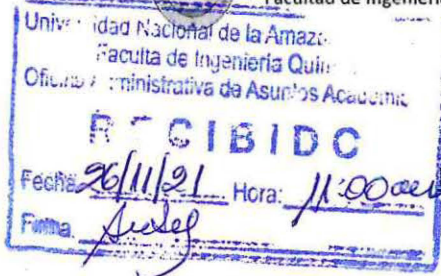 Facultad de Ingenierí
Univ idad Nacional de la Amaz
Faculta de Ingeniería Quí
Oficina ministrativa de Asuntos Académic
R CIBIDO
Fecha: 26/11/21 Hora: 11:00 am
Firma.